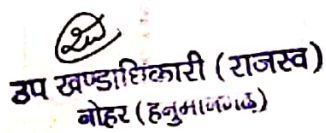 उप खण्डाधिकारी (राजस्व)
नोहर (हनुमानगढ़)